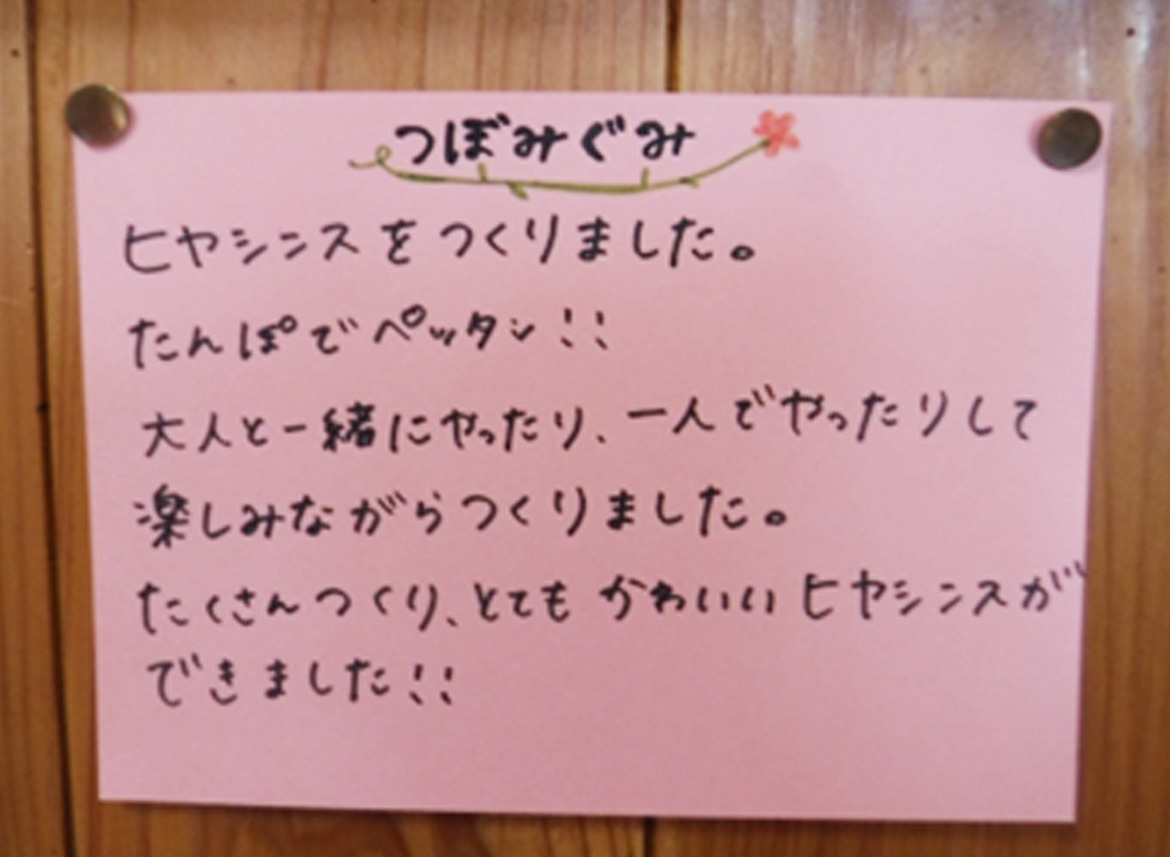 つぼみぐみ
ヒヤシンスをつくりました。
たんぽでペッタン!!
大人と一緒にやったり、一人でやったりして
楽しみながらつくりました。
たくさんつくり、とてもかわいいヒヤシンスが
できました!!